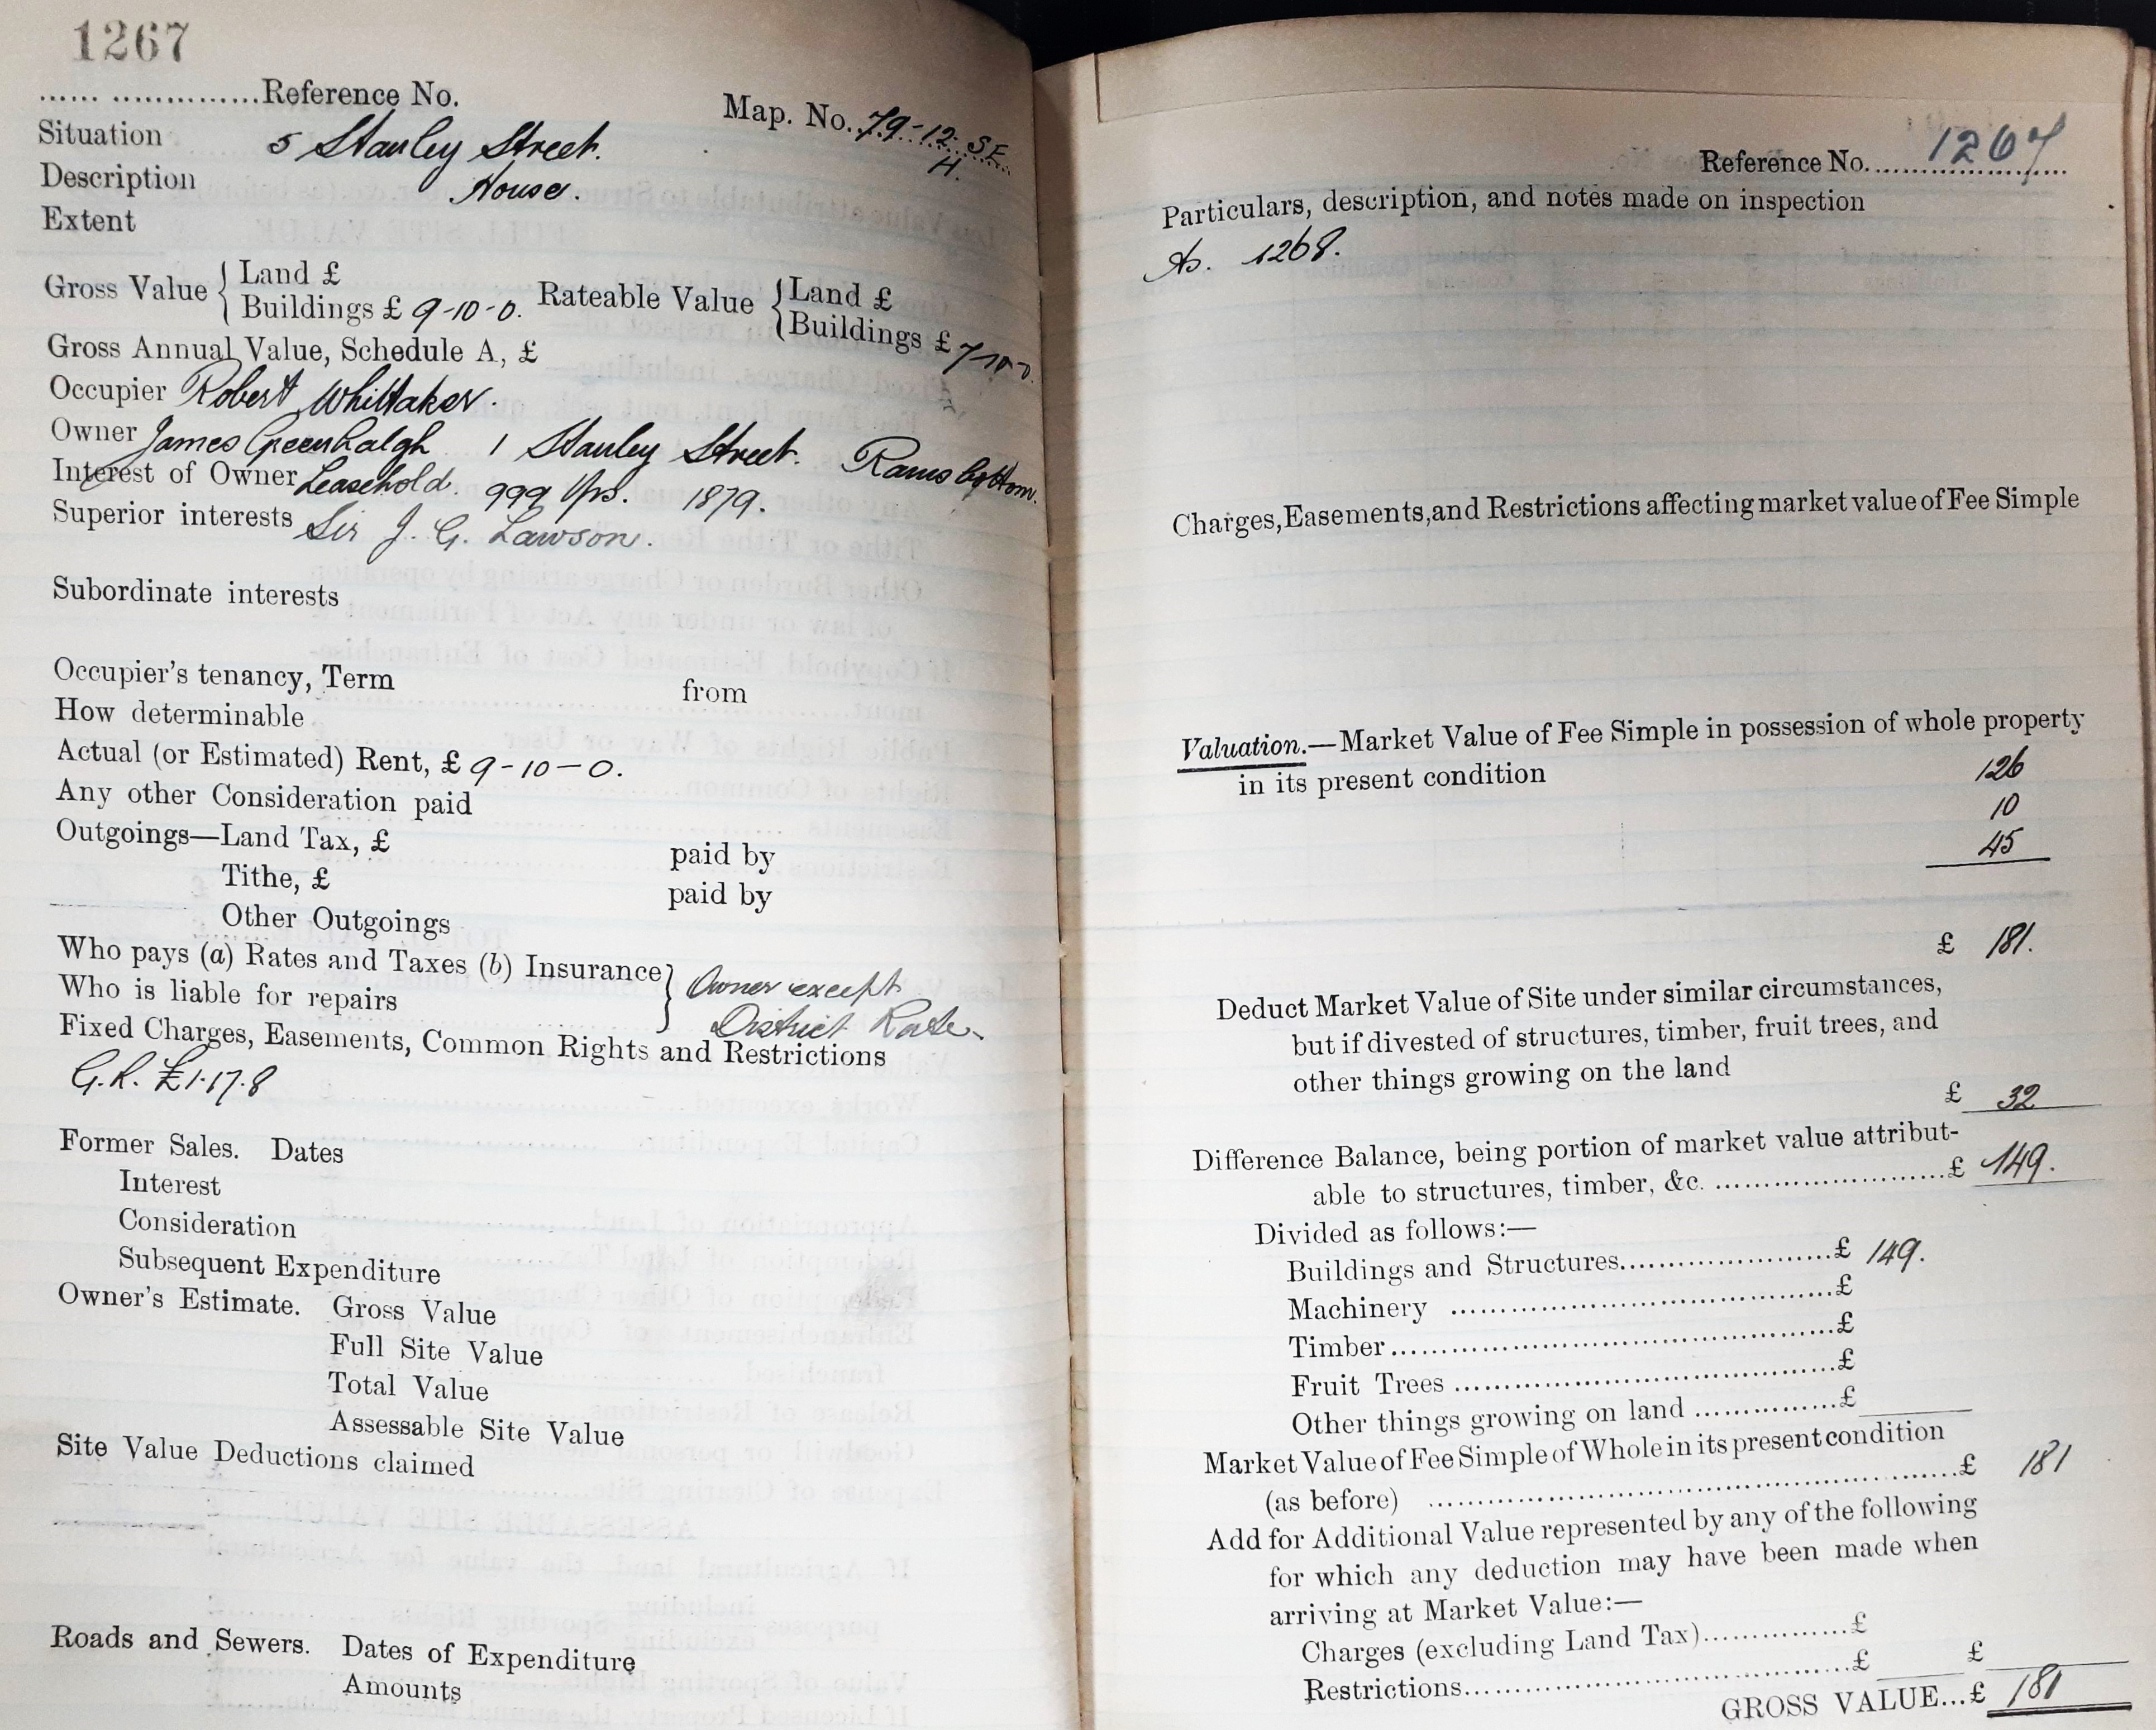 1267
...... ...............Reference No.
Map. No. 79-12. S.E.
H.
Situation 5 Stanley Street.
Description House.
Extent
Gross Value { Land £
Buildings £ 9-10-0. Rateable Value { Land £
Buildings £ 7-10-0.
Gross Annual Value, Schedule A, £
Occupier Robert Whittaker.
Owner James Greenhalgh 1 Stanley Street. Ramsbottom.
Interest of Owner Leasehold. 999 Yrs. 1879.
Superior interests Sir J. G. Lawson.
Subordinate interests
Occupier's tenancy, Term from
How determinable
Actual (or Estimated) Rent, £ 9-10-0.
Any other Consideration paid
Outgoings—Land Tax, £ paid by
Tithe, £ paid by
Other Outgoings
Who pays (a) Rates and Taxes (b) Insurance } Owner except
Who is liable for repairs District Rate.
Fixed Charges, Easements, Common Rights and Restrictions
G.R. £1.17.8
Former Sales. Dates
Interest
Consideration
Subsequent Expenditure
Owner's Estimate. Gross Value
Full Site Value
Total Value
Assessable Site Value
Site Value Deductions claimed
Roads and Sewers. Dates of Expenditure
Amounts
Reference No. 1267
Particulars, description, and notes made on inspection
As. 1268.
Charges, Easements, and Restrictions affecting market value of Fee Simple
Valuation.—Market Value of Fee Simple in possession of whole property
in its present condition
126
10
45
£ 181.
Deduct Market Value of Site under similar circumstances,
but if divested of structures, timber, fruit trees, and
other things growing on the land
£ 32
Difference Balance, being portion of market value attribut-
able to structures, timber, &c. ........................£ 149.
Divided as follows:—
Buildings and Structures.....................£ 149.
Machinery ......................................£
Timber............................................£
Fruit Trees ......................................£
Other things growing on land ...............£
Market Value of Fee Simple of Whole in its present condition
(as before) ......................................................£ 181
Add for Additional Value represented by any of the following
for which any deduction may have been made when
arriving at Market Value:—
Charges (excluding Land Tax)...............£
Restrictions.......................................£ £
GROSS VALUE...£ 181